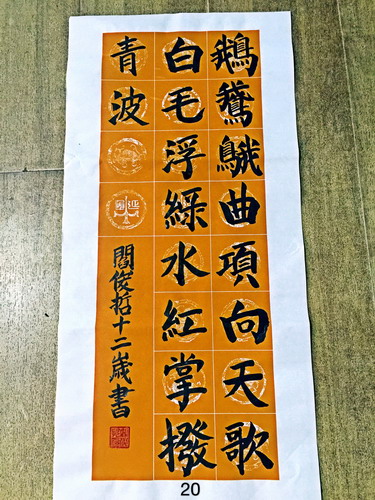 鵝鵞䳗曲項向天歌
白毛浮綠水紅掌撥
青波
閻俊哲十二歲書
20